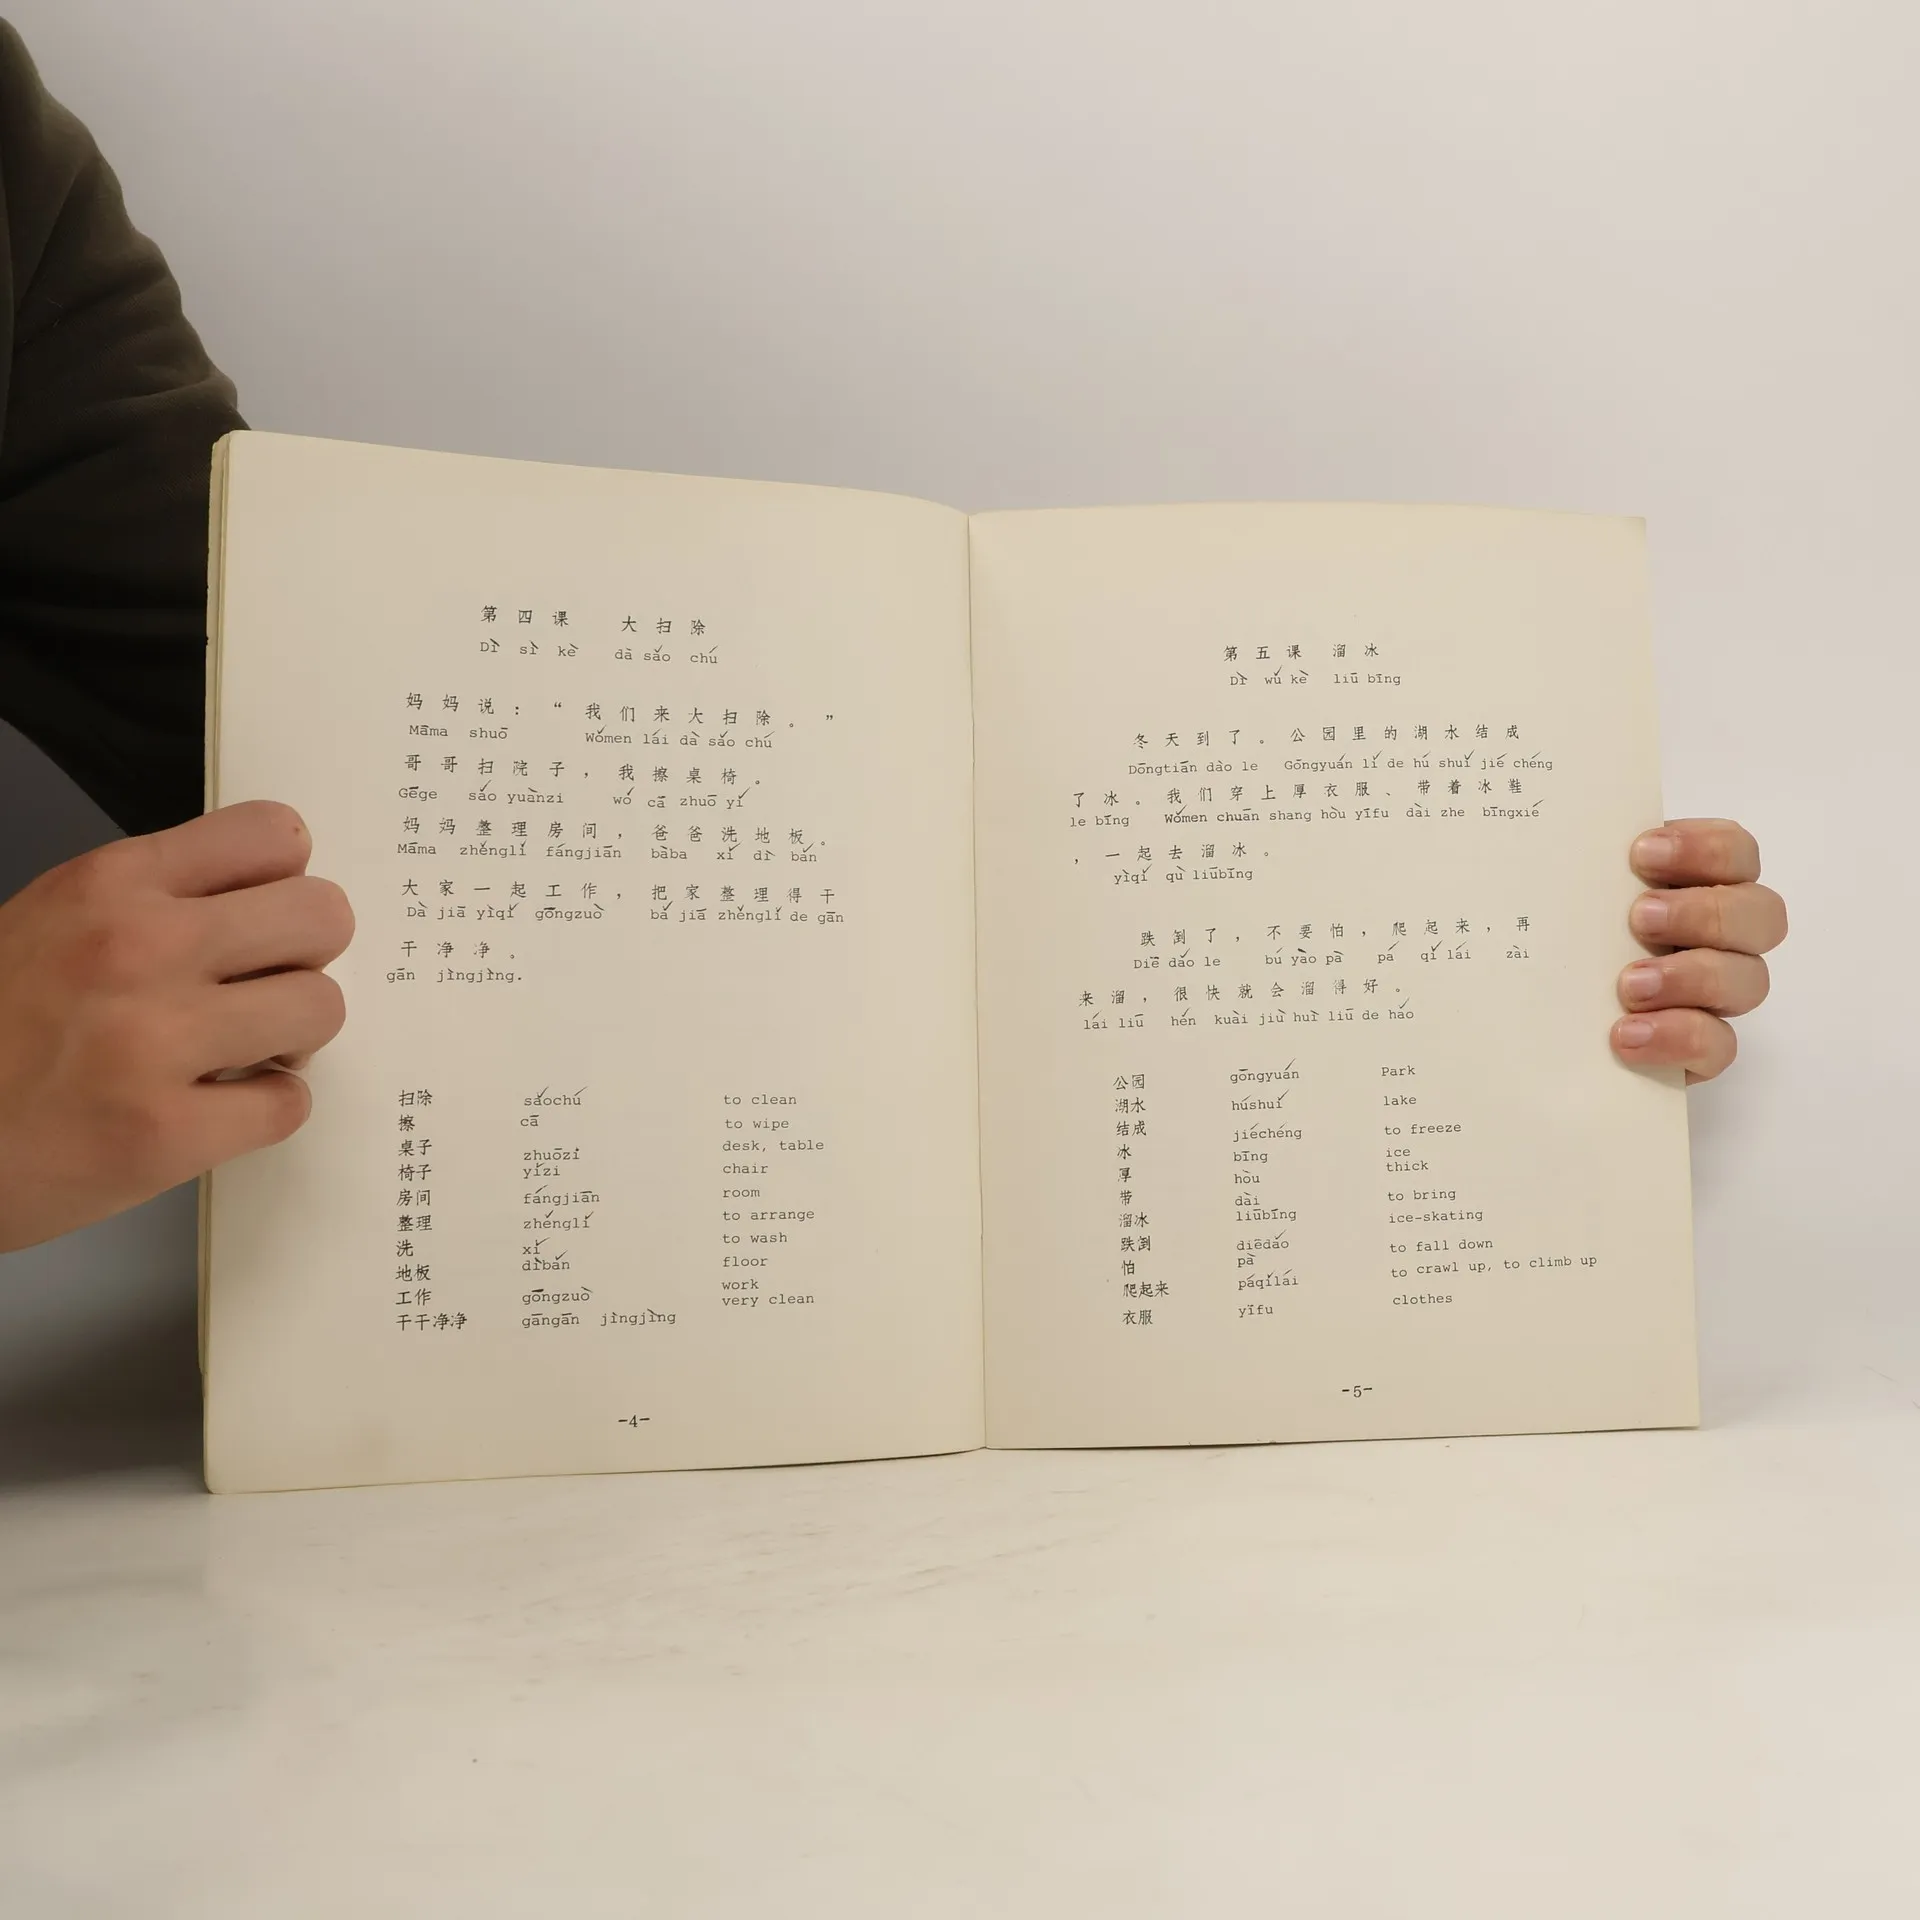 第四课 大扫除
Dì sì kè dà sǎo chú
妈妈说：“我们来大扫除。”
Māma shuō Wǒmen lái dà sǎo chú
哥哥扫院子，我擦桌椅。
Gēge sǎo yuànzi wǒ cā zhuō yǐ
妈妈整理房间，爸爸洗地板。
Māma zhěnglǐ fángjiān bàba xǐ dì bǎn
大家一起工作，把家整理得干
Dà jiā yìqǐ gōngzuò bǎ jiā zhěnglǐ de gān
干净净。
gān jìngjìng.
扫除 sǎochú to clean
擦 cā to wipe
桌子 zhuōzi desk, table
椅子 yǐzi chair
房间 fángjiān room
整理 zhěnglǐ to arrange
洗 xǐ to wash
地板 dìbǎn floor
工作 gōngzuò work
干干净净 gāngān jìngjìng very clean
-4-
第五课 溜冰
Dì wǔ kè liū bīng
冬天到了。公园里的湖水结成
Dōngtiān dào le Gōngyuán lǐ de hú shuǐ jié chéng
了冰。我们穿上厚衣服、带着冰鞋
le bīng Wǒmen chuān shang hòu yīfu dài zhe bīngxié
，一起去溜冰。
yìqǐ qù liūbīng
跌倒了，不要怕，爬起来，再
Diē dǎo le bú yào pà pá qǐ lái zài
来溜，很快就会溜得好。
lái liū hěn kuài jiù huì liū de hǎo
公园 gōngyuán Park
湖水 húshuǐ lake
结成 jiéchéng to freeze
冰 bīng ice
厚 hòu thick
带 dài to bring
溜冰 liūbīng ice-skating
跌倒 diēdǎo to fall down
怕 pà
爬起来 páqǐlái to crawl up, to climb up
衣服 yīfu clothes
-5-